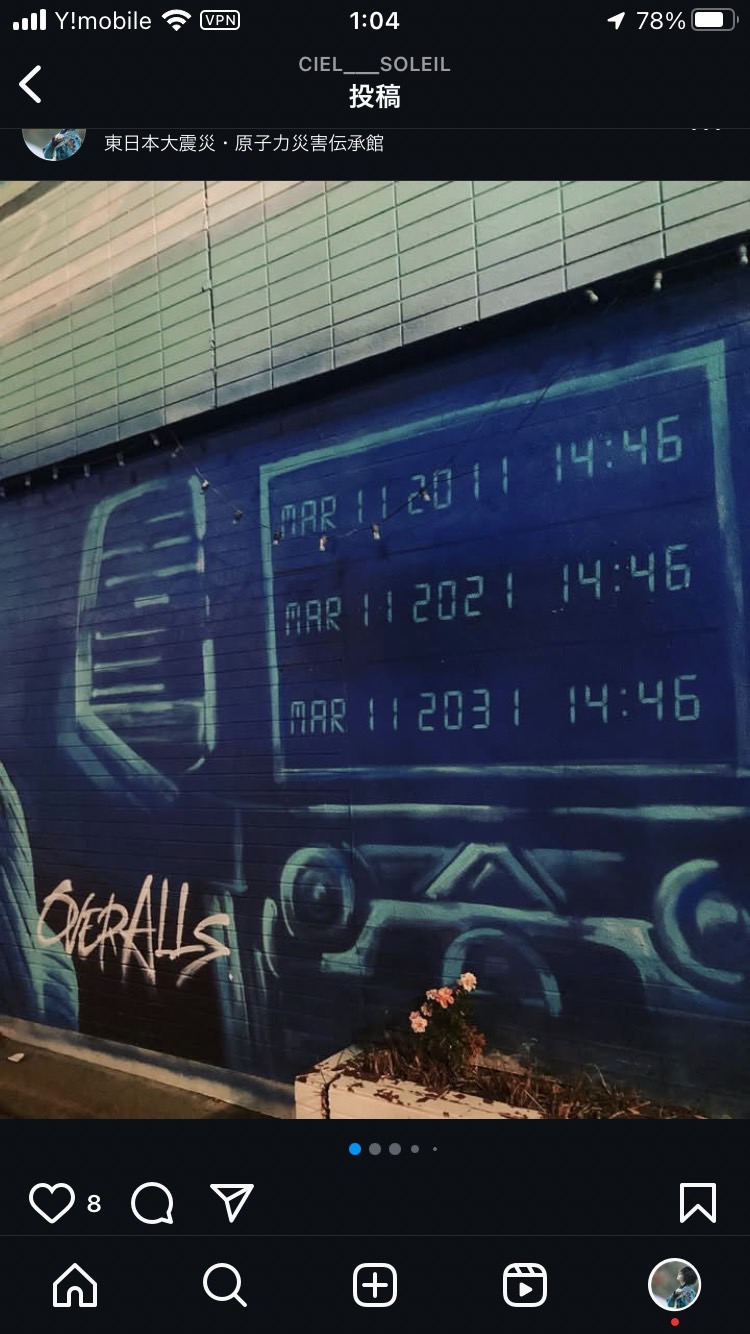 Y!mobile VPN 1:04 78%
CIEL___SOLEIL
投稿
東日本大震災・原子力災害伝承館
MAR 11 2011 14:46
MAR 11 2021 14:46
MAR 11 2031 14:46
OVERALLS
8